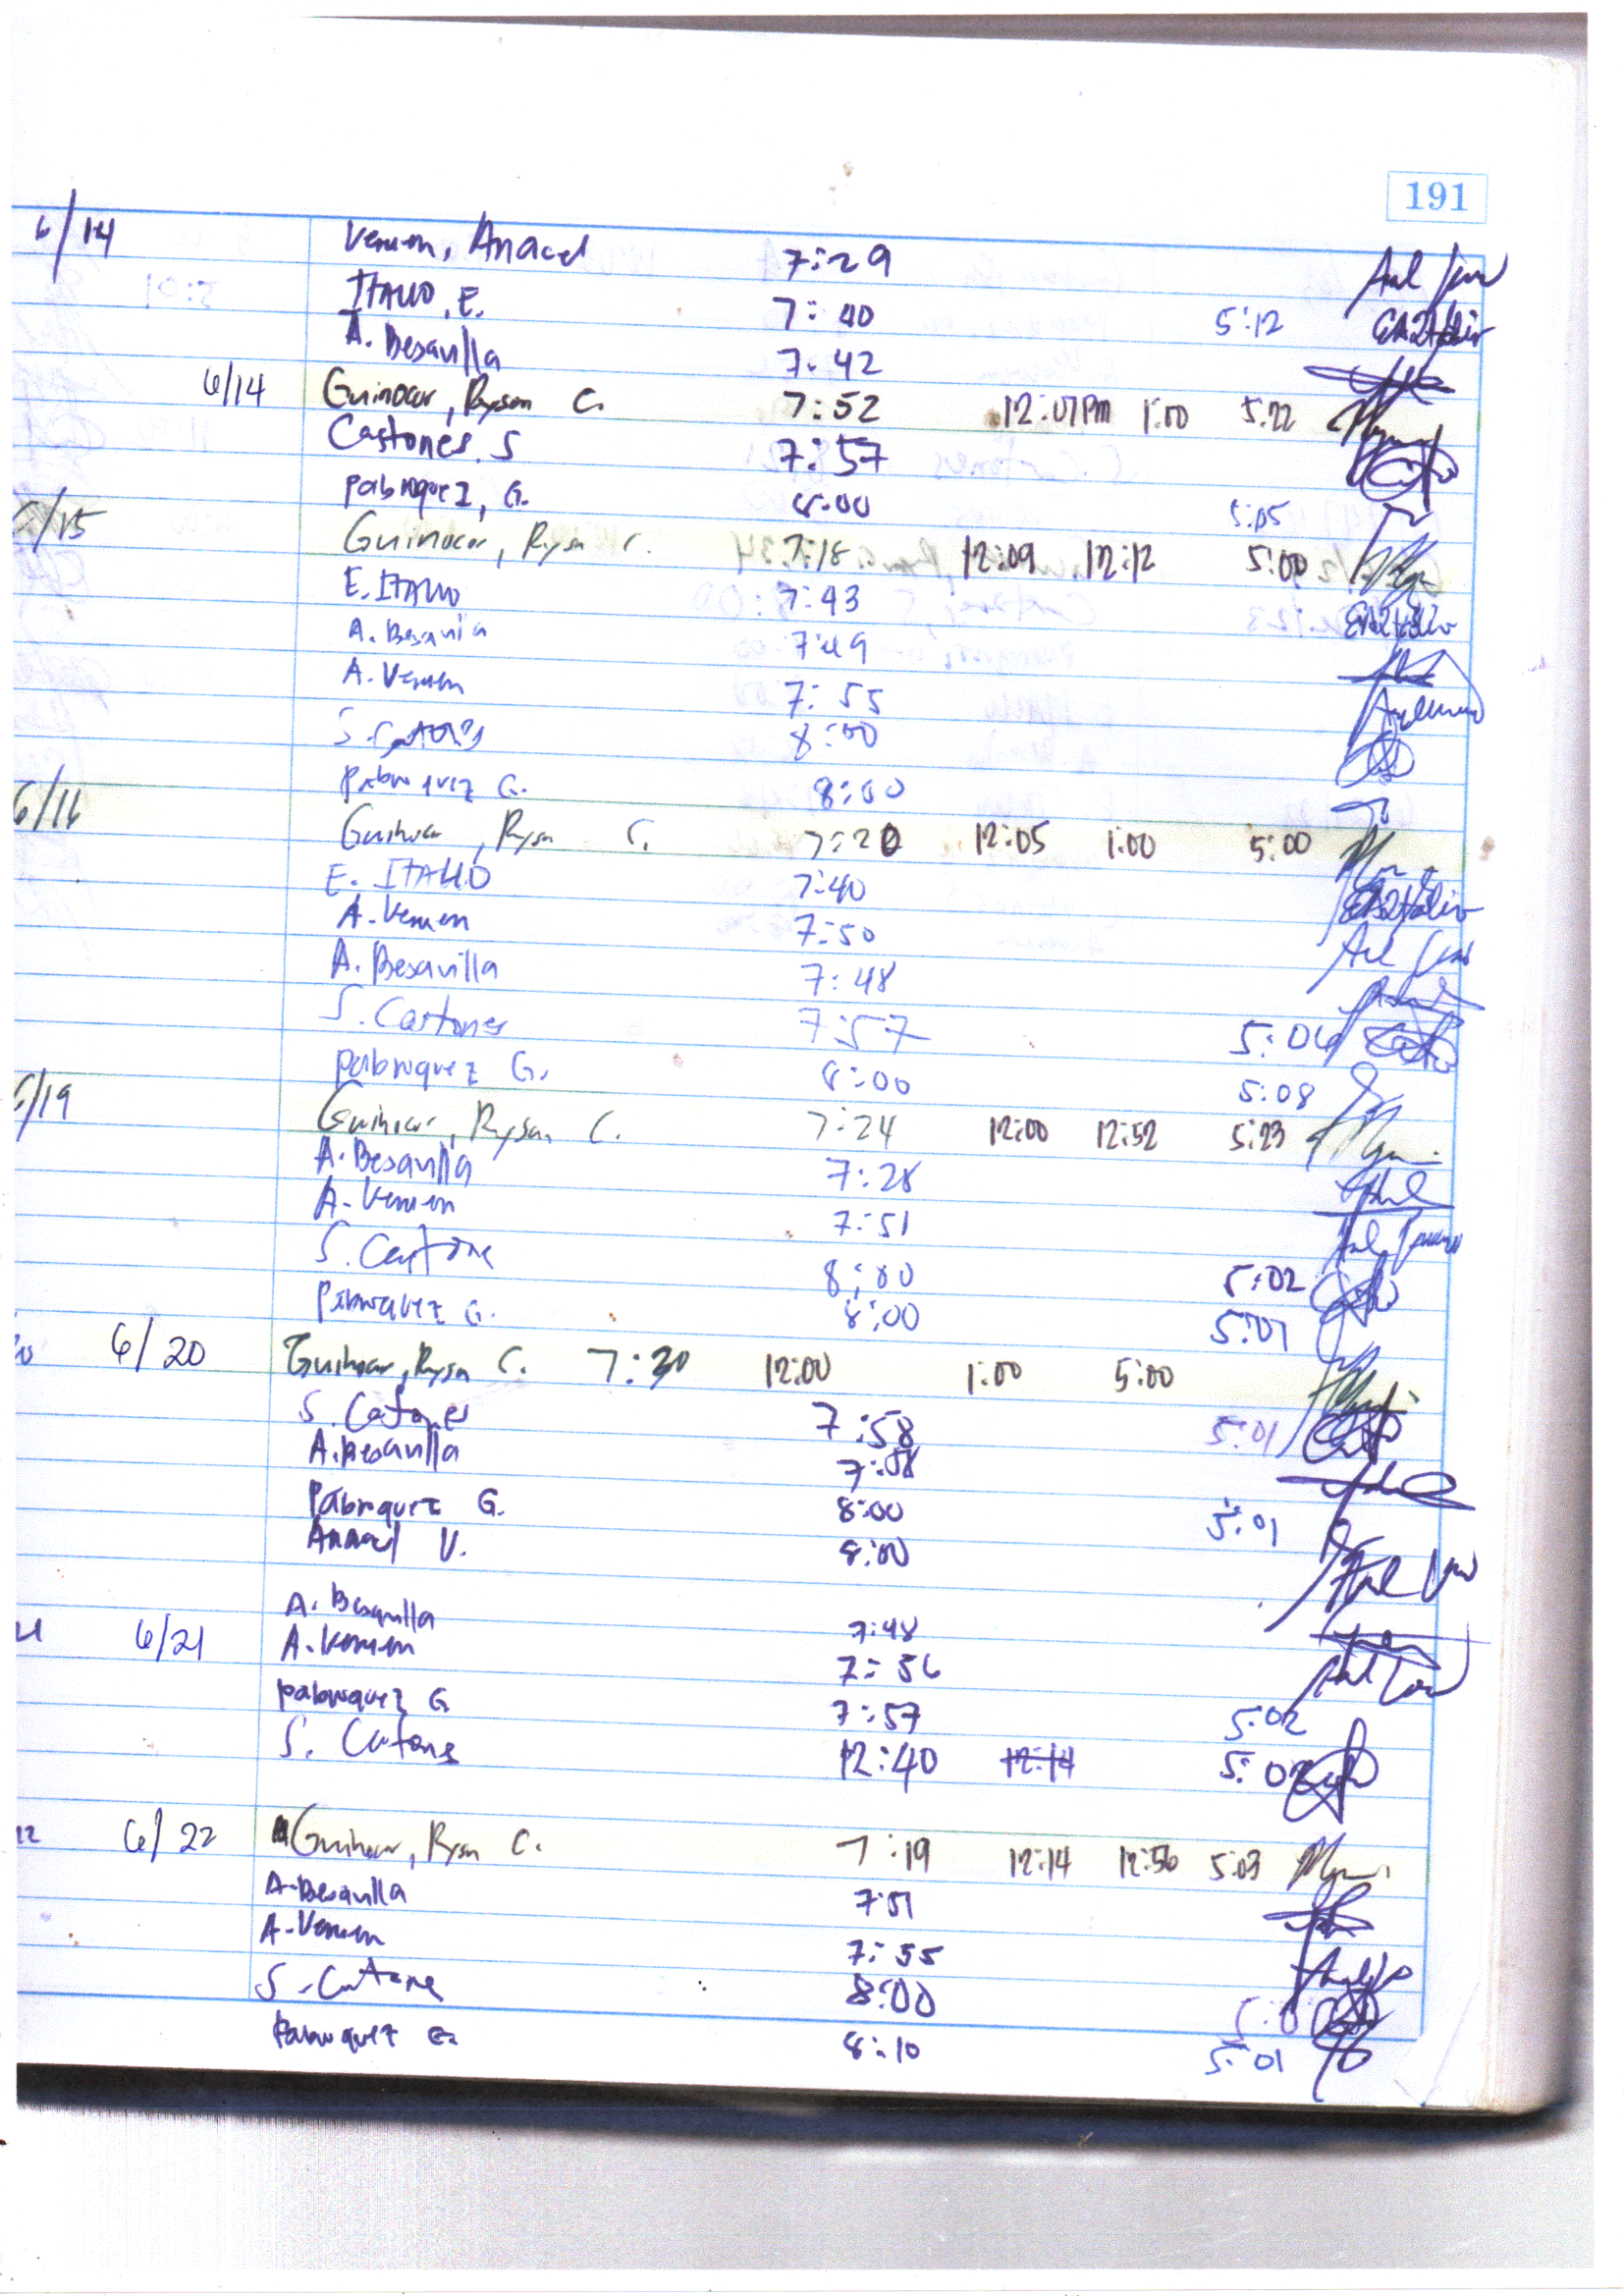 191
6/14 Vemen, Anacel 7:29
ITALIO, E. 7:40 5:12
A. Besavilla 7:42
6/14 Guinocor, Ryson C. 7:52 12:07 PM 1:00 5:22
Castones. S 7:57
Pabroquez, G. 8:00 5:05
6/15 Guinocor, Ryson C. 7:18 12:09 12:12 5:00
E. ITALIO 7:43
A. Besavila 7:49
A. Vemen 7:55
S. 8:00
Pabroquez G. 8:00
6/16 Guinocor, Ryson C. 7:20 12:05 1:00 5:00
E. ITALIO 7:40
A. Vemen 7:50
A. Besavilla 7:48
S. Castones 7:57 5:06
Pabroquez G. 8:00 5:08
6/19 Guinocor, Ryson C. 7:24 12:00 12:52 5:23
A. Besavilla 7:28
A. Vemen 7:51
S. Castone 8:00 5:02
Pabroquez G. 8:00 5:07
6/20 Guinocor, Ryson C. 7:30 12:00 1:00 5:00
S. Castones 7:58 5:01
A. Besavilla 7:58
Pabroquez G. 8:00 5:01
Anacel V. 8:00
A. Besavilla 7:48
6/21 A. Vemen 7:56
Pabroquez G 7:57 5:02
S. Castone 12:40 12:14 5:02
22 6/22 Guinocor, Ryson C. 7:19 12:14 12:56 5:03
A. Besavilla 7:51
A. Vemen 7:55
S. Castone 8:00
Pabroquez G. 8:10 5:01